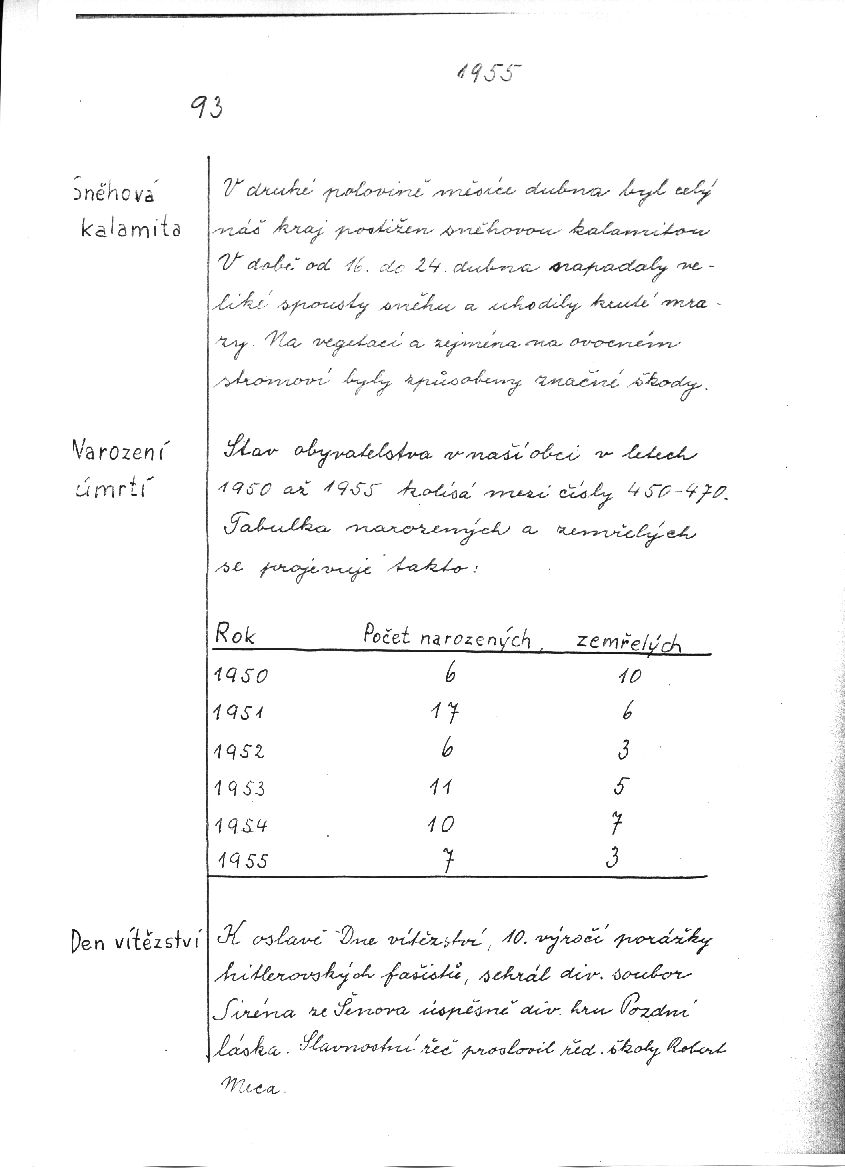 1955
93
Sněhová
kalamita
V druhé polovině měsíce dubna byl celý
náš kraj postižen sněhovou kalamitou
V době od 16. do 24. dubna napadaly ve-
liké spousty sněhu a uhodily kruté mra-
zy. Na vegetaci a zejména na ovocném
stromoví byly způsobeny značné škody.
Narození
úmrtí
Stav obyvatelstva v naší obci v letech
1950 až 1955 kolísá mezi čísly 450-470.
Tabulka narozených a zemřelých
se projevuje takto:
Rok Počet narozených, zemřelých
1950 6 10
1951 17 6
1952 6 3
1953 11 5
1954 10 7
1955 7 3
Den vítězství
K oslavě Dne vítězství, 10. výročí porážky
hitlerovských fašistů, sehrál div. soubor
Siréna ze Šenova úspěšně div. hru Pozdní
láska. Slavnostní řeč proslovil řed. školy Robert
Mica.